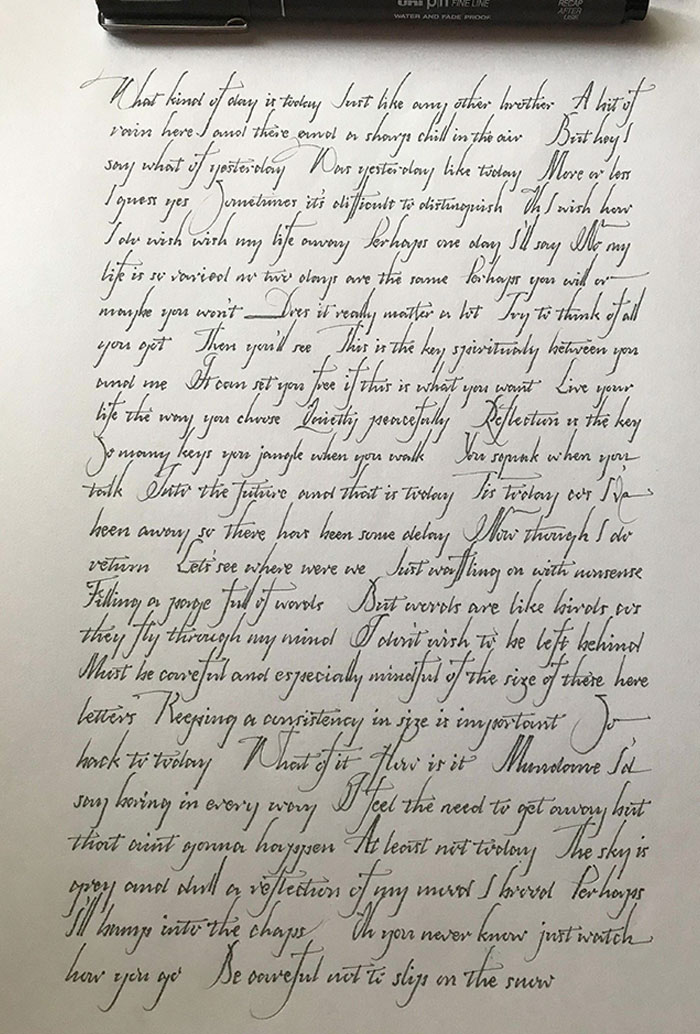 uni pin FINE LINE
WATER AND FADE PROOF
RECAP
AFTER
USE
What kind of day is today Just like any other brother A bit of
rain here and there and a sharp chill in the air But hey I
say what of yesterday Was yesterday like today More or less
I guess yes Sometimes it's difficult to distinguish Oh I wish how
I do wish wish my life away Perhaps one day I'll say No my
life is so varied no two days are the same Perhaps you will or
maybe you won't Does it really matter a lot Try to think of all
you got Then you'll see This is the key spiritualy between you
and me It can set you free if this is what you want Live your
life the way you choose Quietly peacefully Reflection is the key
So many keys you jangle when you walk You squeak when you
talk Into the future and that is today Tis today cos I've
been away so there has been some delay Now though I do
return Let's see where were we Just waffling on with nonsense
Filling a page full of words But words are like birds cos
they fly through my mind I don't wish to be left behind
Must be careful and especially mindful of the size of these here
letters Keeping a consistency in size is important So
back to today What of it How is it Mundane I'd
say boring in every way I feel the need to get away but
that aint gonna happen At least not today The sky is
grey and dull a reflection of my mood I brood Perhaps
I'll bump into the chaps Oh you never know just watch
how you go Be careful not to slip on the snow